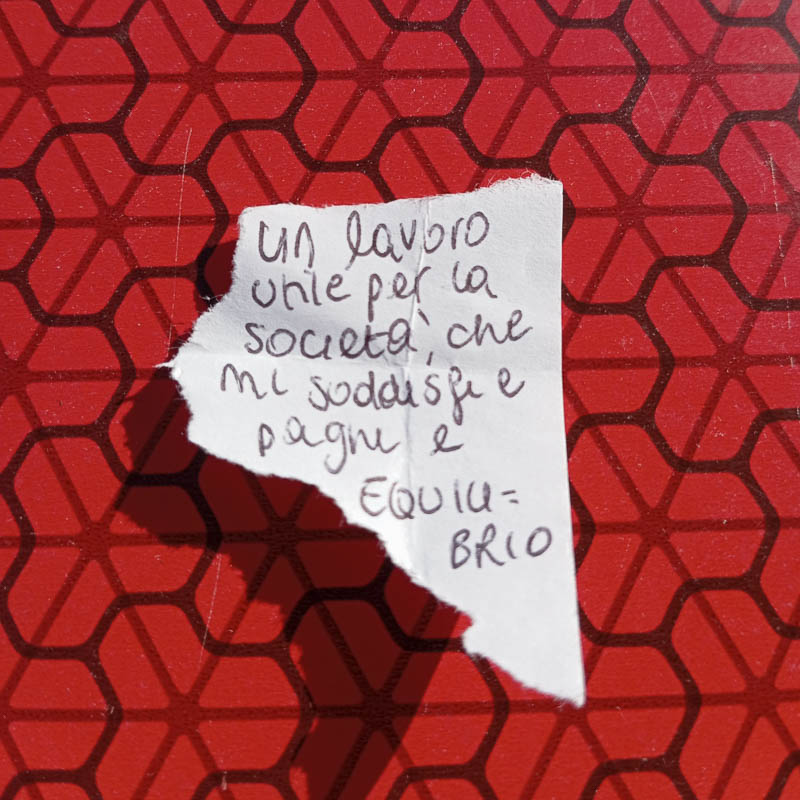 un lavoro
utile per la
società, che
mi soddisfi e
paghi e
EQUILI=
BRIO